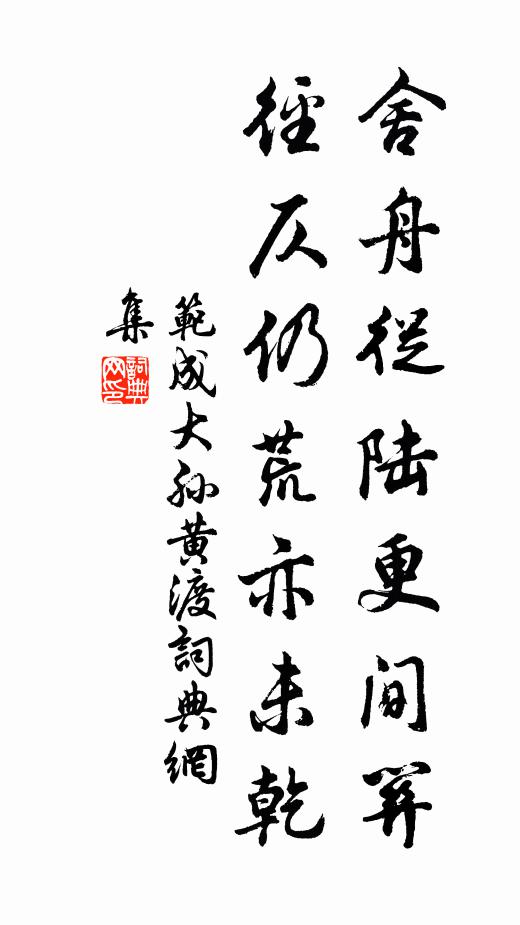 舍舟從陆更間關
徑仄仍荒亦未乾
範成大孫黃渡詞典網
集
詞典
网印